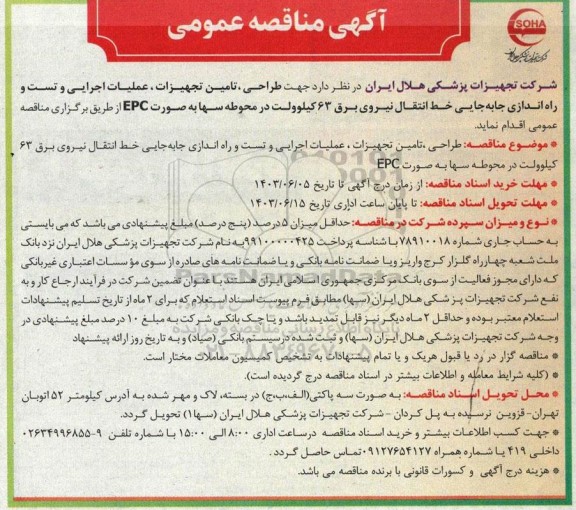 آگهی مناقصه عمومی
SOHA
شرکت تجهیزات پزشکی هلال ایران در نظر دارد جهت طراحی ، تامین تجهیزات ، عملیات اجرایی و تست و
راه اندازی جابه‌جایی خط انتقال نیروی برق ۶۳ کیلوولت در محوطه سها به صورت EPC از طریق برگزاری مناقصه
عمومی اقدام نماید.
* موضوع مناقصه: طراحی ،تامین تجهیزات ، عملیات اجرایی و تست و راه اندازی جابه‌جایی خط انتقال نیروی برق ۶۳
کیلوولت در محوطه سها به صورت EPC
* مهلت خرید اسناد مناقصه: از زمان درج آگهی تا تاریخ ۱۴۰۳/۰۶/۰۵
* مهلت تحویل اسناد مناقصه: تا پایان ساعت اداری تاریخ ۱۴۰۳/۰۶/۱۵
* نوع و میزان سپرده شرکت در مناقصه: حداقل میزان ۵ درصد (پنج درصد) مبلغ پیشنهادی می باشد که می بایستی
به حساب جاری شماره ۷۸۹۱۰۰۱۸ با شناسه پرداخت ۹۹۱۰۰۰۰۰۴۲۵ به نام شرکت تجهیزات پزشکی هلال ایران نزد بانک
ملت شعبه چهارراه گلزار کرج واریز و یا ضمانت نامه بانکی و یا ضمانت نامه های صادره از سوی مؤسسات اعتباری غیربانکی
که دارای مجوز فعالیت از سوی بانک مرکزی جمهوری اسلامی ایران هستند با عنوان تضمین شرکت در فرآیند ارجاع کار و به
نفع شرکت تجهیزات پزشکی هلال ایران (سها) مطابق فرم پیوست اسناد استعلام که برای ۲ ماه از تاریخ تسلیم پیشنهادات
استعلام معتبر بوده و حداقل ۲ ماه دیگر نیز قابل تمدید باشد و یا چک بانکی شرکت به مبلغ ۱۰ درصد مبلغ پیشنهادی در
وجه شرکت تجهیزات پزشکی هلال ایران (سها) و ثبت شده در سیستم بانکی (صیاد) و به تاریخ روز ارائه پیشنهاد
* مناقصه گزار در رد یا قبول هریک و یا تمام پیشنهادات به تشخیص کمیسیون معاملات مختار است.
* (کلیه شرایط معامله و اطلاعات بیشتر در اسناد مناقصه درج گردیده است).
* محل تحویل اسناد مناقصه: به صورت سه پاکتی(الف،ب،ج) در بسته، لاک و مهر شده به آدرس کیلومتر ۵۲ اتوبان
تهران- قزوین نرسیده به پل کردان - شرکت تجهیزات پزشکی هلال ایران (سها۱) تحویل گردد.
* جهت کسب اطلاعات بیشتر و خرید اسناد مناقصه در ساعت اداری ۸:۰۰ الی ۱۵:۰۰ با شماره تلفن ۹-۰۲۶۳۴۹۹۶۸۵۵
داخلی ۴۱۹ یا شماره همراه ۰۹۱۲۷۶۵۴۱۲۷ تماس حاصل گردد .
* هزینه درج آگهی و کسورات قانونی با برنده مناقصه می باشد.